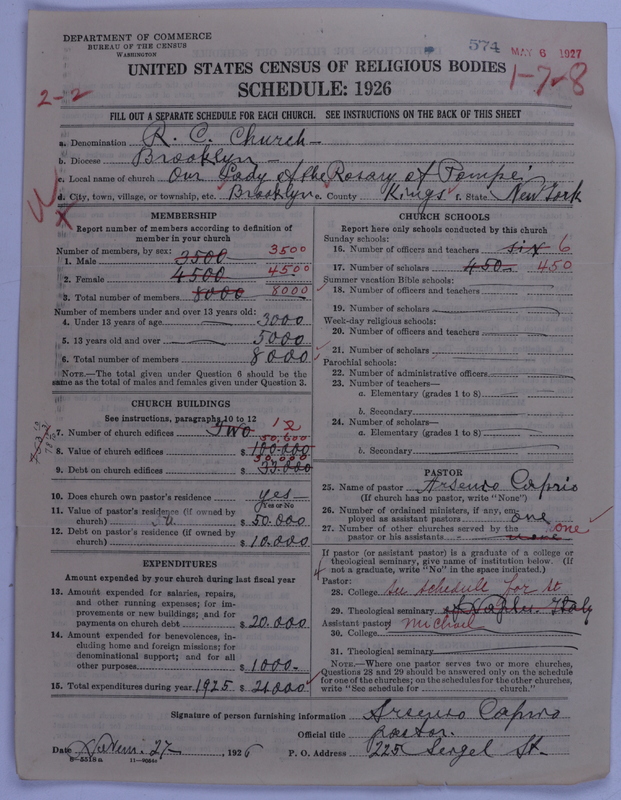 DEPARTMENT OF COMMERCE
BUREAU OF THE CENSUS
WASHINGTON
574
MAY 6 1927
1-7-8
2-2
UNITED STATES CENSUS OF RELIGIOUS BODIES
SCHEDULE: 1926
FILL OUT A SEPARATE SCHEDULE FOR EACH CHURCH. SEE INSTRUCTIONS ON THE BACK OF THIS SHEET
a. Denomination R. C. Church
b. Diocese Brooklyn
c. Local name of church Our Lady of the Rosary of Pompei
d. City, town, village, or township, etc. Brooklyn e. County Kings f. State New York
MEMBERSHIP
Report number of members according to definition of
member in your church
Number of members, by sex:
1. Male 3500 3500
2. Female 4500 4500
3. Total number of members 8000 8000
Number of members under and over 13 years old:
4. Under 13 years of age 3000
5. 13 years old and over 5000
6. Total number of members 8000
NOTE.—The total given under Question 6 should be the
same as the total of males and females given under Question 3.
CHURCH BUILDINGS
See instructions, paragraphs 10 to 12
7. Number of church edifices Two 1
8. Value of church edifices $ 100.000 50,000
9. Debt on church edifices $ 33.000 50,000
10. Does church own pastor's residence yes
(Yes or No)
11. Value of pastor's residence (if owned by
church) $ 50.000
12. Debt on pastor's residence (if owned by
church) $ 10.000
EXPENDITURES
Amount expended by your church during last fiscal year
13. Amount expended for salaries, repairs,
and other running expenses; for im-
provements or new buildings; and for
payments on church debt $ 20.000
14. Amount expended for benevolences, in-
cluding home and foreign missions; for
denominational support; and for all
other purposes $ 1000
15. Total expenditures during year 1925 $ 21.000
CHURCH SCHOOLS
Report here only schools conducted by this church
Sunday schools:
16. Number of officers and teachers six 6
17. Number of scholars 450 450
Summer vacation Bible schools:
18. Number of officers and teachers
19. Number of scholars
Week-day religious schools:
20. Number of officers and teachers
21. Number of scholars
Parochial schools:
22. Number of administrative officers
23. Number of teachers—
a. Elementary (grades 1 to 8)
b. Secondary
24. Number of scholars—
a. Elementary (grades 1 to 8)
b. Secondary
PASTOR
25. Name of pastor Arsenio Caprio
(If church has no pastor, write "None")
26. Number of ordained ministers, if any, em-
ployed as assistant pastors one
27. Number of other churches served by the
pastor or his assistants one
If pastor (or assistant pastor) is a graduate of a college or
theological seminary, give name of institution below. (If
not a graduate, write "No" in the space indicated.)
Pastor:
28. College See schedule for St
29. Theological seminary Naples. Italy
Assistant pastor: Michael
30. College
31. Theological seminary
NOTE.—Where one pastor serves two or more churches,
Questions 28 and 29 should be answered only on the schedule
for one of the churches; on the schedules for the other churches,
write "See schedule for church."
Signature of person furnishing information Arsenio Caprio
Official title pastor.
Date 27 , 1926 P. O. Address 225 Seigel St.
8—5518a 11—9054a